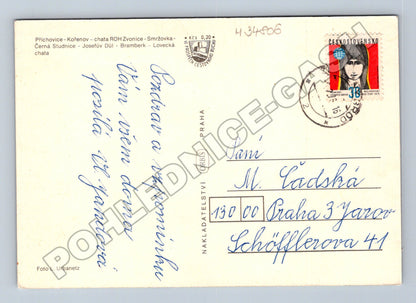 Příchovice - Kořenov - chata ROH Zvonice - Smržovka-
Černá Studnice - Josefův Důl - Bramberk - Lovecká
chata
Kčs 0,20
434806
ČESKOSLOVENSKO
Pozdrav a vzpomínku
Vám všem doma
posílá
Foto L. Urbanetz
NAKLADATELSTVÍ PRAHA
Vám
M. Čadská
130 00 Praha 3 Jarov
Schöfflerova 41
POHLEDNICE-GASH